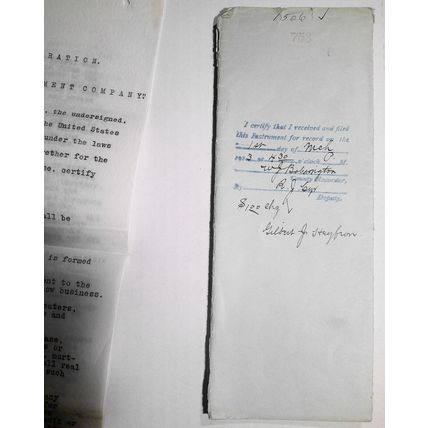 RATION.
MENT COMPANY?
, the undersigned,
the United States
under the laws
ether for the
se, certify
all be
is formed
ent to the
ow business.
eaters,
e and
ase,
s or
mort-
ll real
such
ny
for
or
7506 ✓
753
I certify that I received and filed
this Instrument for record on the
1st day of Mch
3 at 4 30 o'clock M.
County Recorder,
By R. J.
Deputy.
$1.00 chg
Gilbert J.